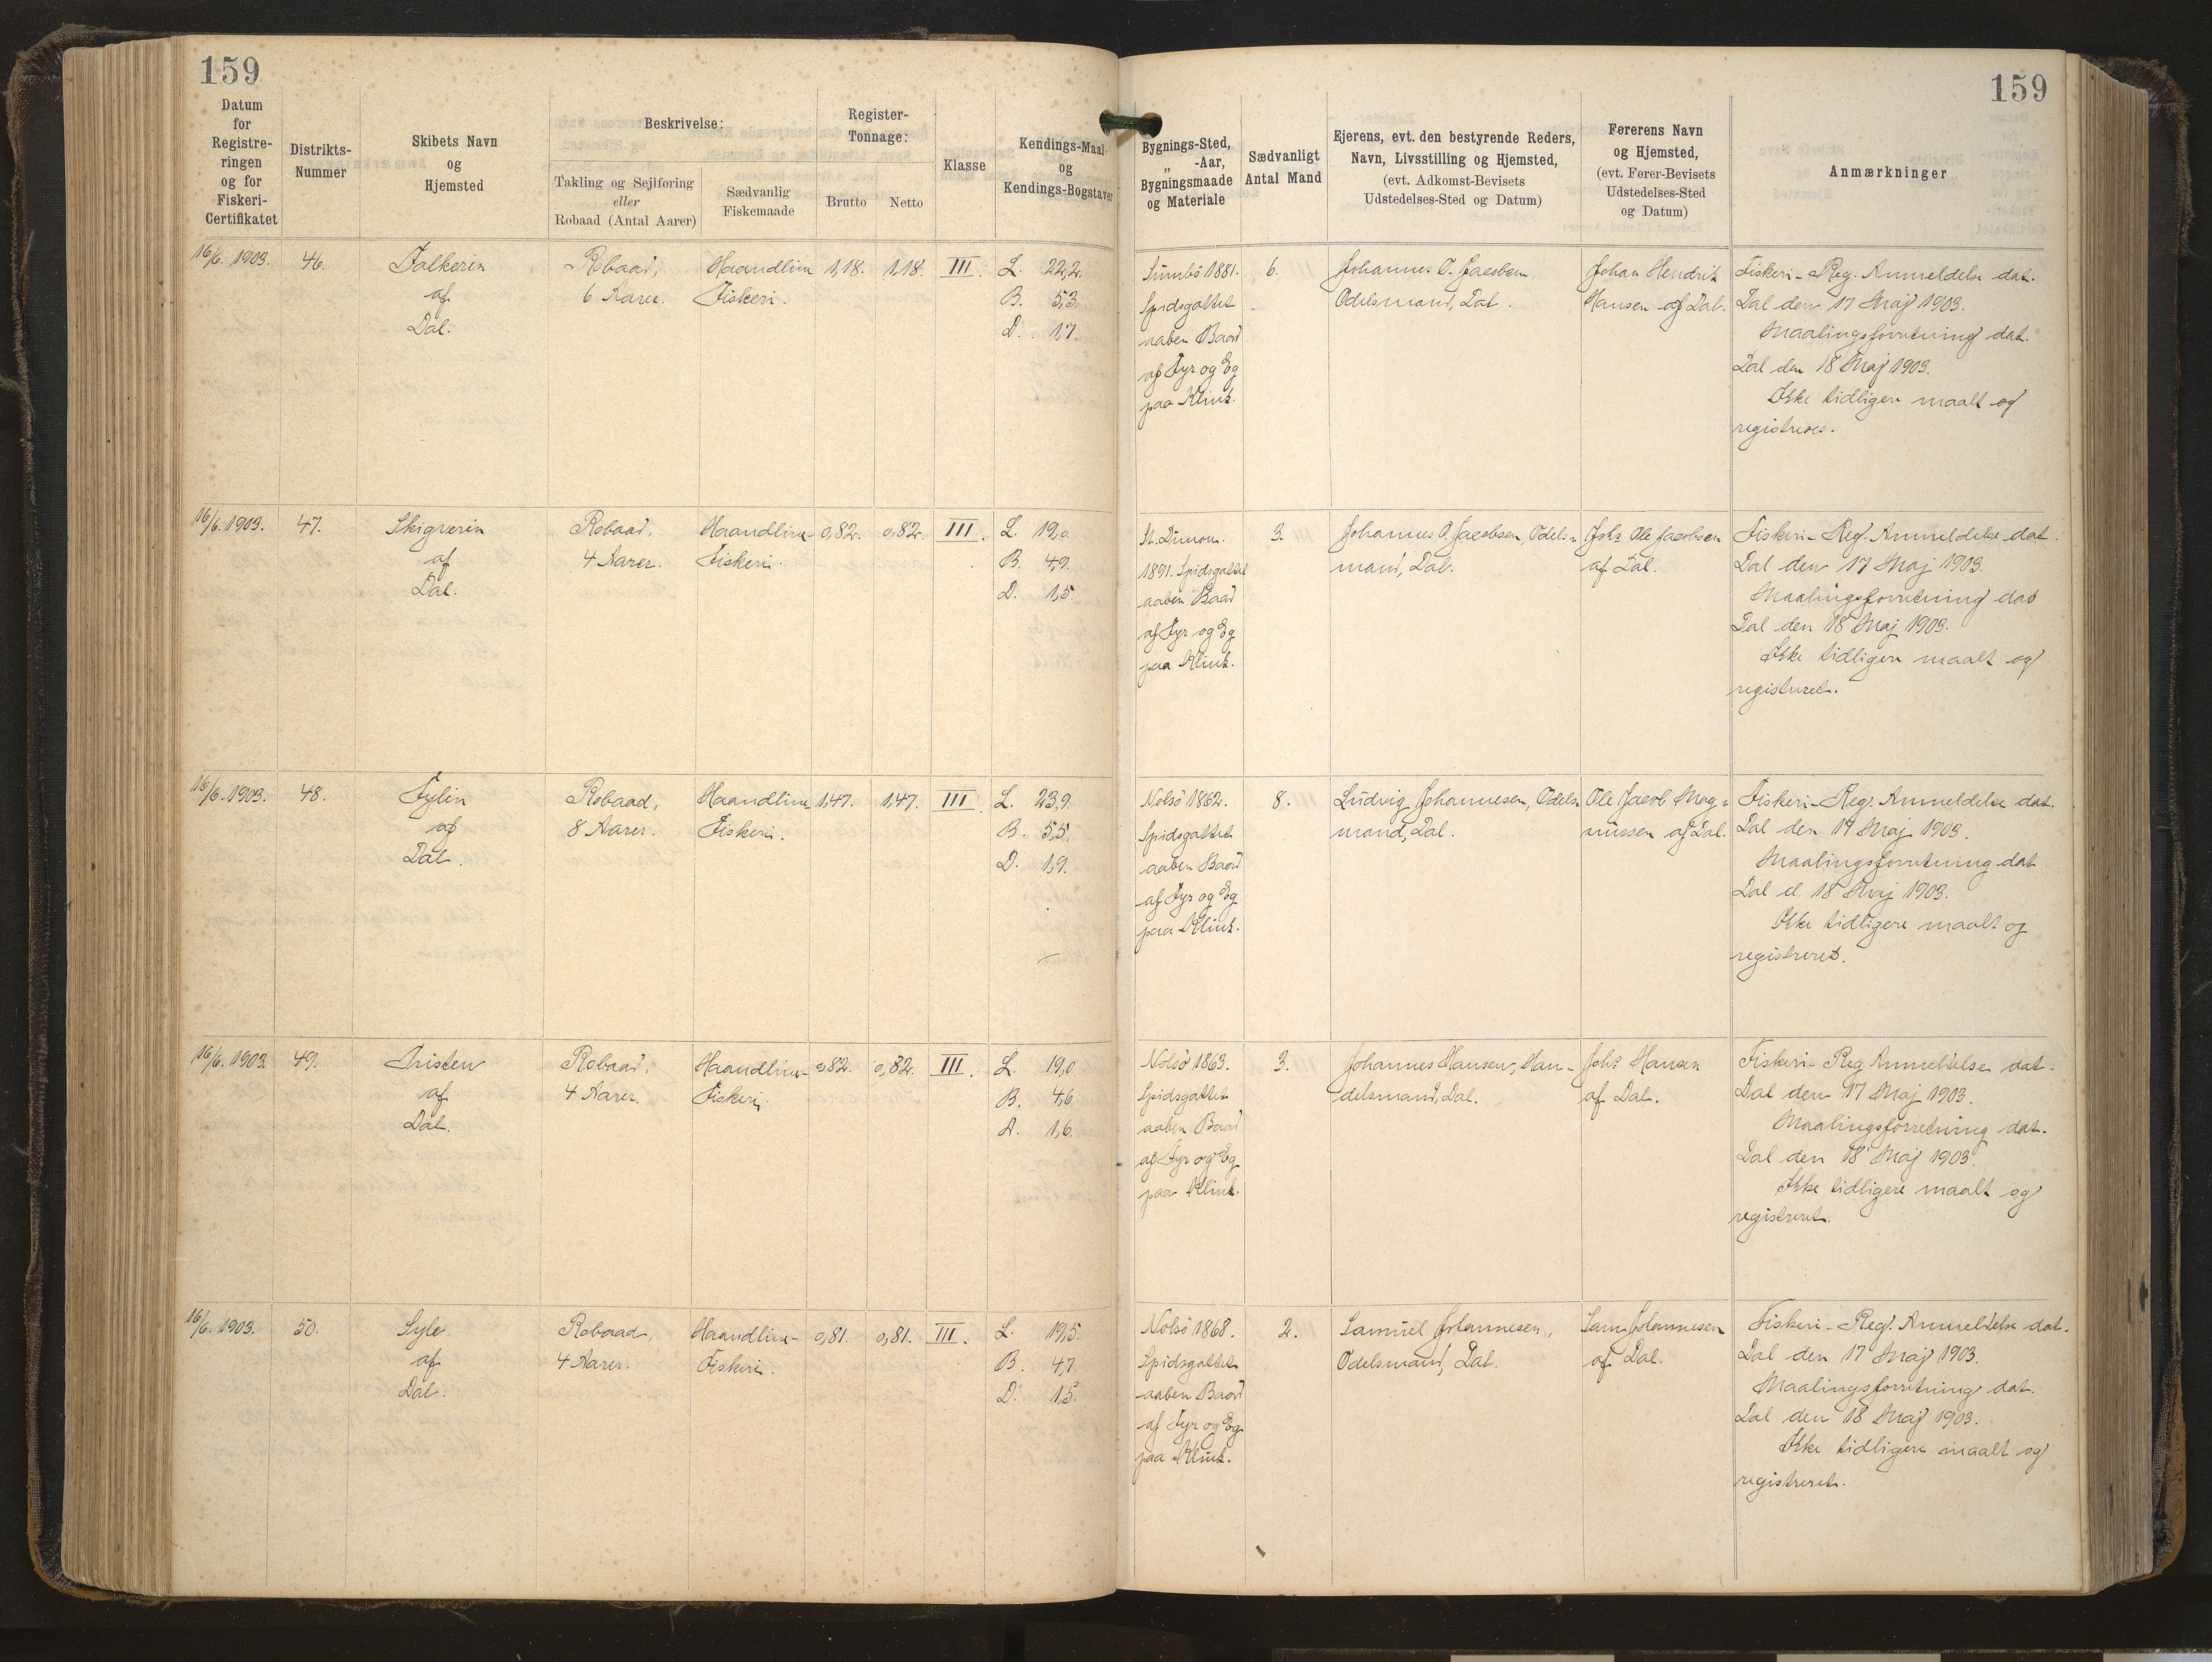 159
159
Datum
for
Registre-
ringen
og for
Fiskeri-
Certifikatet
Distrikts-
Nummer
Skibets Navn
og
Hjemsted
Beskrivelse:
Takling og Sejlføring
eller
Robaad (Antal Aarer)
Sædvanlig
Fiskemaade
Register-
Tonnage:
Brutto
Netto
Klasse
Kendings-Maal
og
Kendings-Bogstaver
Bygnings-Sted,
„ -Aar,
Bygningsmaade
og Materiale
Sædvanligt
Antal Mand
Ejerens, evt. den bestyrende Reders,
Navn, Livsstilling og Hjemsted,
(evt. Adkomst-Bevisets
Udstedelses-Sted og Datum)
Førerens Navn
og Hjemsted,
(evt. Fører-Bevisets
Udstedelses-Sted
og Datum)
Anmærkninger
16/6. 1903.
46.
Falkerin
af
Dal.
Robaad,
6 Aarer.
Haandline
Fiskeri.
1,18.
1,18.
III.
L. 22,2.
B. 5,3.
D. 1,7.
Sumbö 1881.
Spidsgattet
aaben Baad
af Fyr og Eg
paa Klink.
6.
Johannes O. Jacobsen,
Odelsmand, Dal.
Johan Hendrik
Hansen af Dal.
Fiskeri-Reg. Anmeldelse dat.
Dal den 17 Maj 1903.
Maalingsforretning dat.
Dal den 18 Maj 1903.
Ikke tidligere maalt og
registreres.
16/6. 1903.
47.
Skigverin
af
Dal.
Robaad,
4 Aarer.
Haandline-
Fiskeri.
0,82.
0,82.
III.
L. 19,0.
B. 4,9.
D. 1,5.
St. Dimon.
1891. Spidsgattet
aaben Baad
af Fyr og Eg
paa Klink.
3.
Johannes O. Jacobsen, Odels-
mand, Dal.
Johs Ole Jacobsen
af Dal.
Fiskeri-Reg. Anmeldelse dat.
Dal den 17 Maj 1903.
Maalingsforretning dat
Dal den 18 Maj 1903.
Ikke tidligere maalt og
registreret.
16/6. 1903.
48.
Fylin
af
Dal.
Robaad,
8 Aarer.
Haandline
Fiskeri.
1,47.
1,47.
III
L. 23,9.
B. 5,5.
D. 1,9.
Nolsö 1862.
Spidsgattet
aaben Baad
af Fyr og Eg
paa Klink.
8.
Ludvig Johannesen, Odels-
mand, Dal.
Ole Jacob Mag-
nussen af Dal.
Fiskeri-Reg. Anmeldelse dat.
Dal den 17 Maj 1903.
Maalingsforretning dat
Dal d. 18 Maj 1903.
Ikke tidligere maalt og
registreret.
16/6. 1903.
49.
Tristen
af
Dal.
Robaad,
4 Aarer.
Haandline-
Fiskeri.
0,82.
0,82.
III.
L. 19,0
B. 4,6
D. 1,6.
Nolsö 1863.
Spidsgattet
aaben Baad
af Fyr og Eg
paa Klink.
3.
Johannes Hansen, Han-
delsmand, Dal.
Johs Hansen
af Dal.
Fiskeri-Reg. Anmeldelse dat.
Dal den 17 Maj 1903.
Maalingsforretning dat.
Dal den 18 Maj 1903.
Ikke tidligere maalt og
registreret.
16/6. 1903.
50.
Syle
af
Dal.
Robaad,
4 Aarer.
Haandline-
Fiskeri.
0,81.
0,81.
III.
L. 19,5.
B. 4,7.
D. 1,5.
Nolsö 1868.
Spidsgattet
aaben Baad
af Fyr og Eg
paa Klink.
2.
Samuel Johannesen,
Odelsmand, Dal.
Sam. Johannesen
af Dal.
Fiskeri-Reg. Anmeldelse dat.
Dal den 17 Maj 1903.
Maalingsforretning dat.
Dal den 18 Maj 1903.
Ikke tidligere maalt og
registreret.